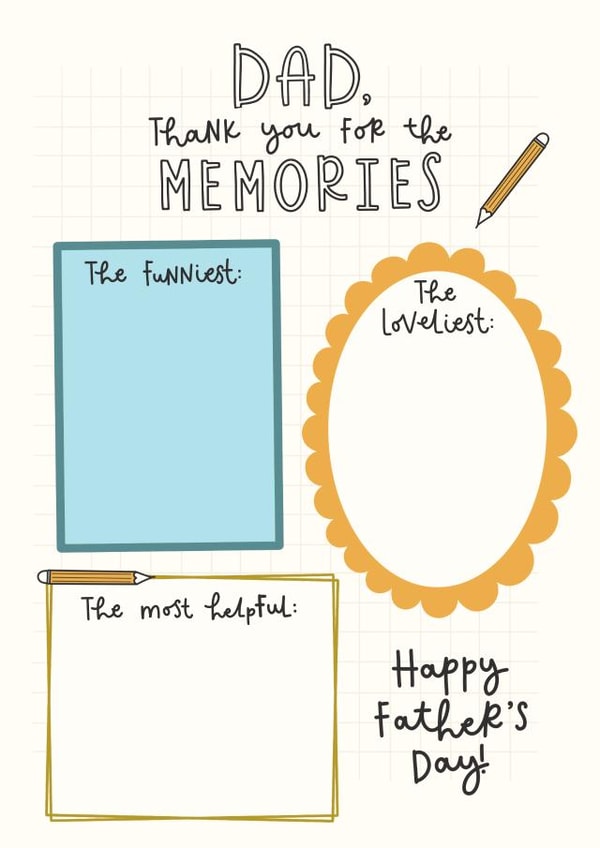 DAD,
Thank you for the
MEMORIES
The funniest:
The
loveliest:
The most helpful:
Happy
Father's
Day!